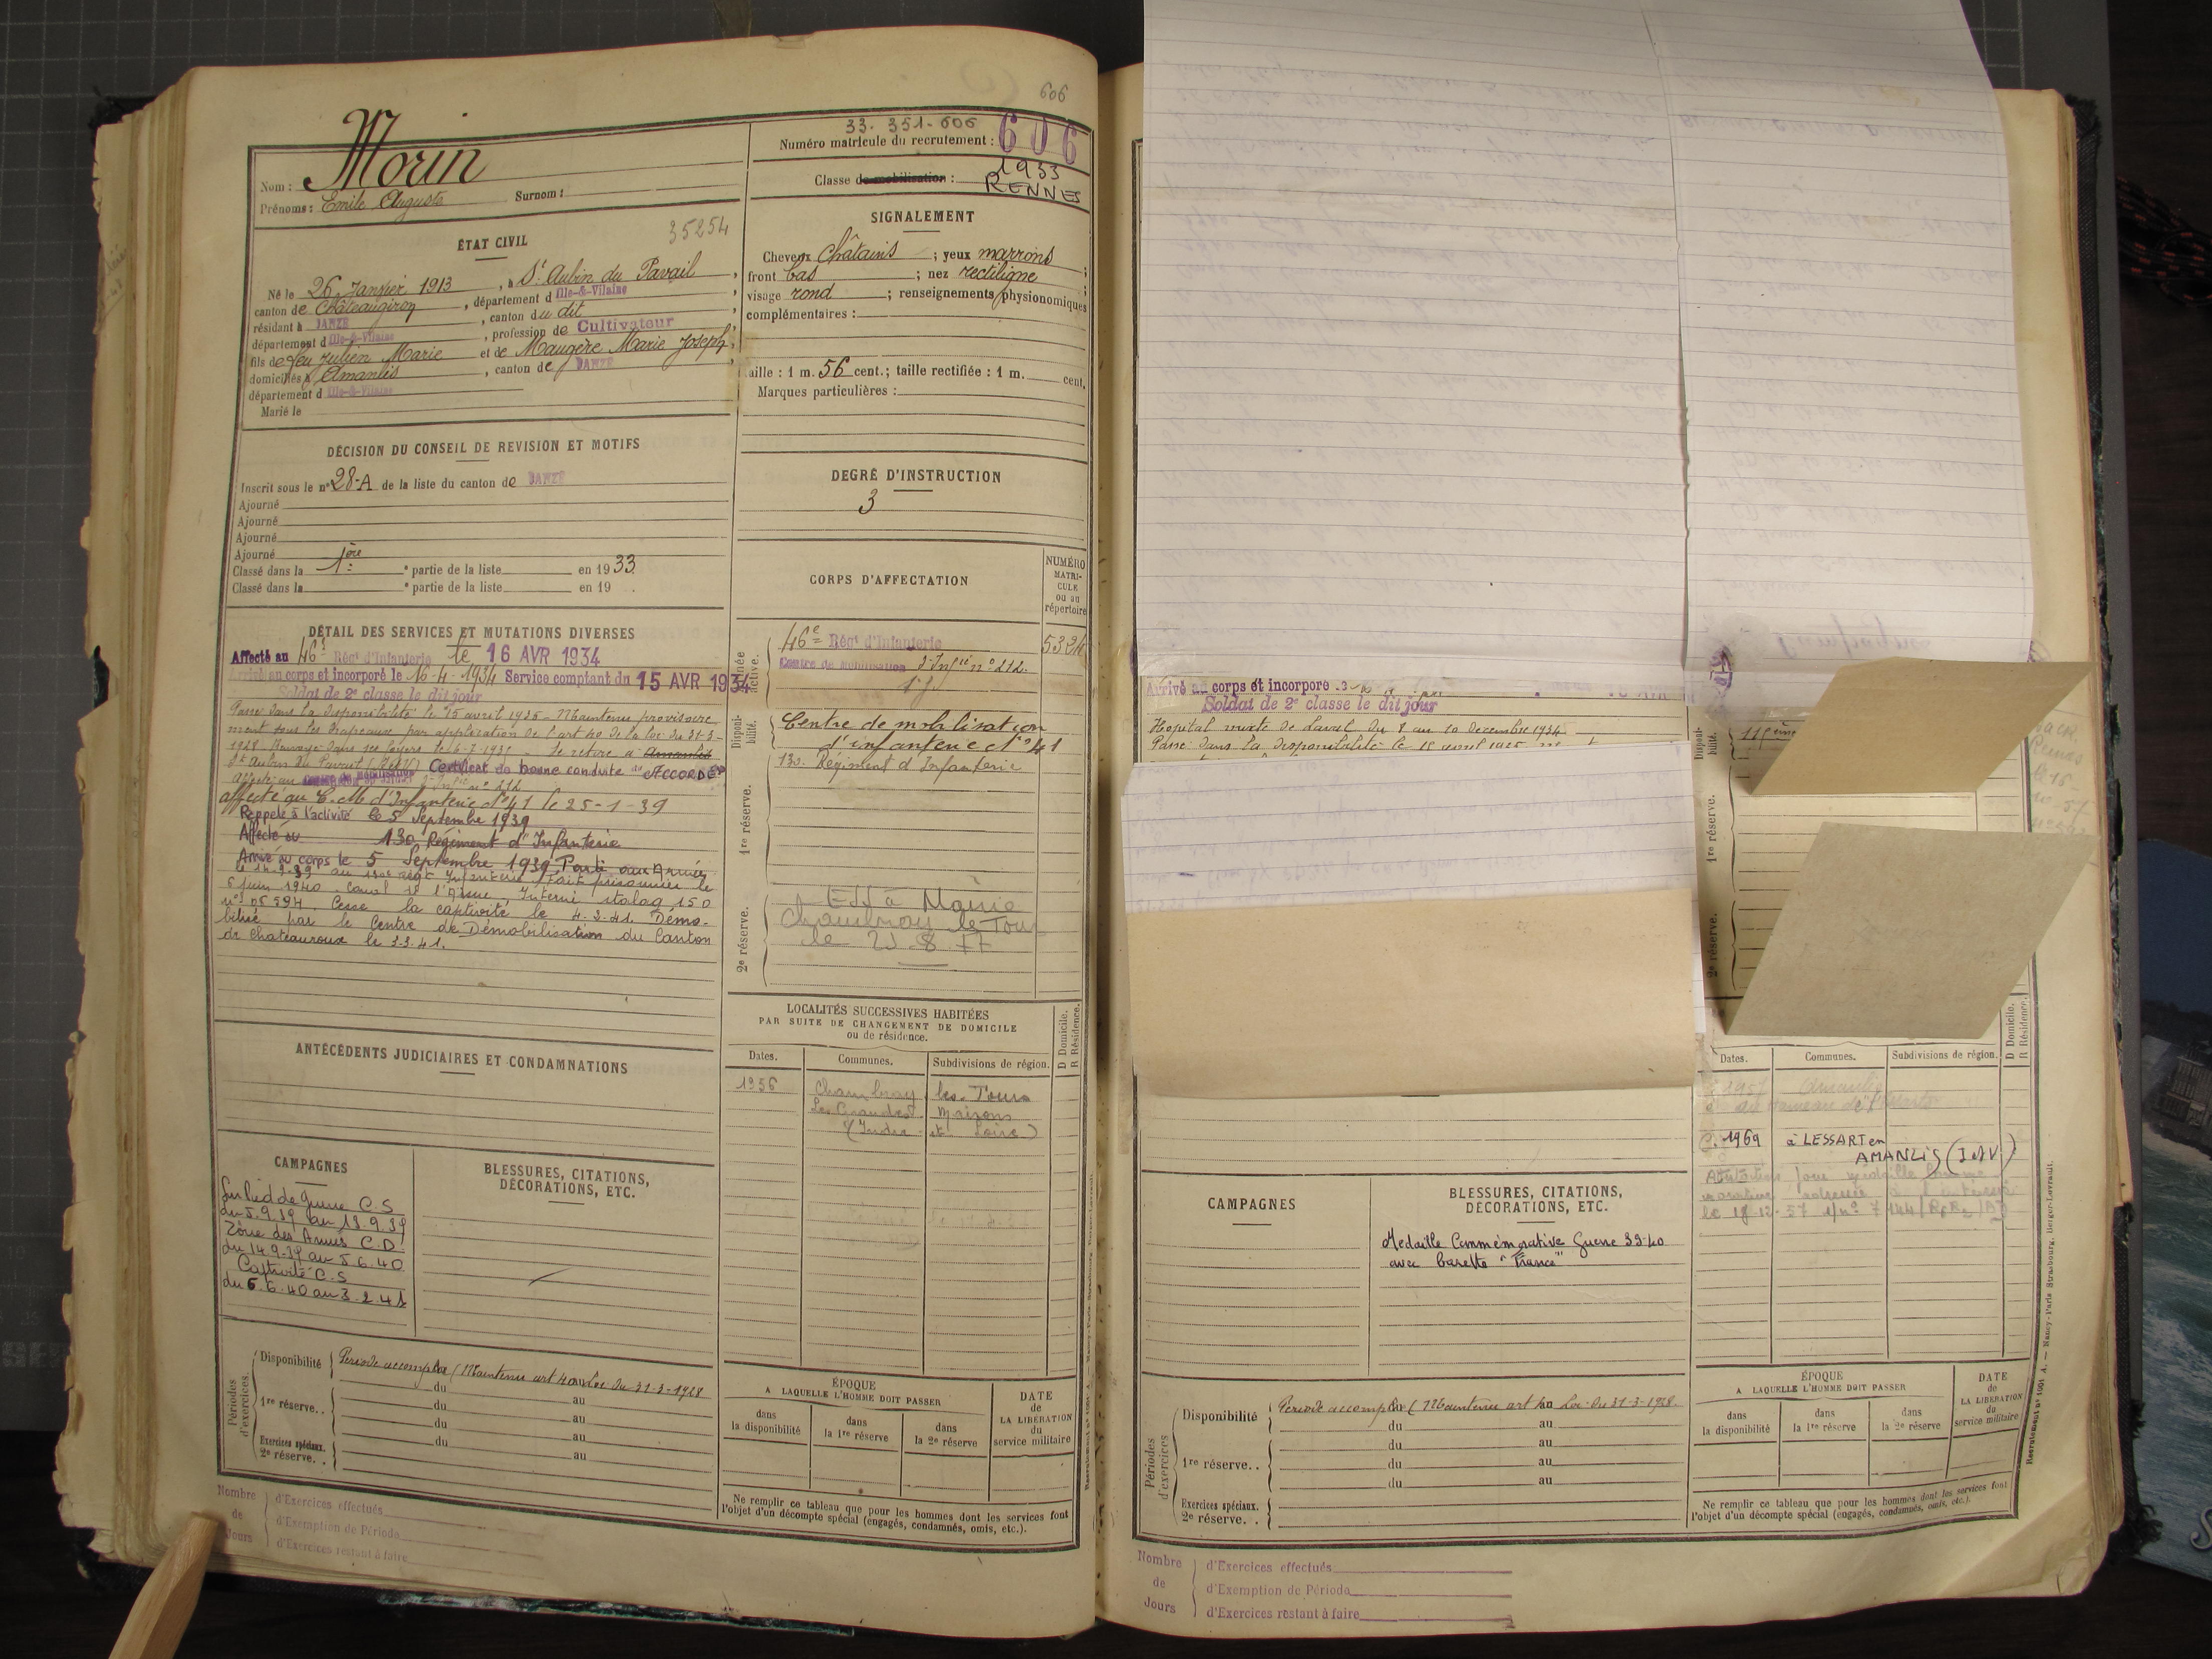 606
33. 351. 606
Numéro matricule du recrutement : 606
Classe de mobilisation : 1933
RENNES
Nom : Morin
Prénoms : Emile Auguste Surnom :
ÉTAT CIVIL
35254
Né le 26 Janvier 1913, à St Aubin du Pavail,
canton de Châteaugiron, département d Ille-&-Vilaine,
résidant à JANZÉ, canton du dit
département d Ille-&-Vilaine, profession de Cultivateur,
fils de feu Julien Marie et de Maugère Marie Joseph,
domiciliés à Amanlis, canton de JANZÉ,
département d Ille-&-Vilaine
Marié le
SIGNALEMENT
Cheveux Châtains ; yeux marrons ;
front bas ; nez rectiligne ;
visage rond ; renseignements physionomiques
complémentaires :
Taille : 1 m. 56 cent.; taille rectifiée : 1 m. cent.
Marques particulières :
DÉCISION DU CONSEIL DE REVISION ET MOTIFS
Inscrit sous le n° 28-A de la liste du canton de JANZÉ
Ajourné
Ajourné
Ajourné
Ajourné
Classé dans la 1ère partie de la liste en 1933.
Classé dans la partie de la liste en 19 .
DEGRÉ D'INSTRUCTION
3
DÉTAIL DES SERVICES ET MUTATIONS DIVERSES
Affecté au 46e Régt d'Infanterie le 16 AVR 1934
Arrivé au corps et incorporé le 16-4-1934 Service comptant du 15 AVR 1934
Soldat de 2e classe le dit jour
Passé dans la disponibilité le 15 avril 1935 - Maintenu provisoire
ment sous les drapeaux par application de l'art 40 de la loi du 31-3-
1928 Renvoyé dans ses foyers le 6-7-1935 - Se retire à Amanlis
St Aubin du Pavail (I&V) Certificat de bonne conduite "ACCORDÉ"
Affecté au Centre de Mobilisation d'Infie n° 212
affecté au C.M. d'Infanterie N°41 le 25-1-39
Rappelé à l'activité le 5 Septembre 1939
Affecté au 130 Régiment d'Infanterie
Arrivé au corps le 5 Septembre 1939 Parti aux Armées
le 14-9-39 au 130e Régt Infanterie Fait prisonnier le
6 juin 1940 Canal de l'Aisne, Interné stalag 150
Cesse la captivité le 4-2-41. Démo-
bilisé par le Centre de Démobilisation du Canton
de Chateauroux le 3-3-41.
CORPS D'AFFECTATION
NUMÉRO MATRI-CULE ou au répertoire
Année active.
46e Régt d'Infanterie 5324
Centre de mobilisation d'Infie n°212.
Disponi-bilité.
Centre de mobilisation
d'infanterie N°41
1re réserve.
130. Régiment d'Infanterie
2e réserve.
Eff à Mairie
Chambray le Tour
le 23 8 77
ANTÉCÉDENTS JUDICIAIRES ET CONDAMNATIONS
LOCALITÉS SUCCESSIVES HABITÉES
PAR SUITE DE CHANGEMENT DE DOMICILE
ou de résidence.
D Domicile.
R Résidence.
Dates. Communes. Subdivisions de région.
1956 Chambray les Tours
Les Grandes Maisons
(Indre et Loire)
CAMPAGNES
Sur Pied de Guerre C.S
du 5.9.39 au 13.9.39
Zône des Armées C.D.
du 14.9.39 au 5.6.40
Captivité C.S
du 6.6.40 au 3.2.41
BLESSURES, CITATIONS,
DÉCORATIONS, ETC.
Périodes d'exercices.
Disponibilité Période accomplie (Maintenu art 40 Loi du 31-3-1928
du au
1re réserve. . du au
du au
Exercices spéciaux. du au
2e réserve. .
ÉPOQUE
A LAQUELLE L'HOMME DOIT PASSER
DATE de LA LIBÉRATION du service militaire
dans la disponibilité
dans la 1re réserve
dans la 2e réserve
Ne remplir ce tableau que pour les hommes dont les services font
l'objet d'un décompte spécial (engagés, condamnés, omis, etc.).
Nombre de Jours
d'Exercices effectués
d'Exemption de Période
d'Exercices restant à faire
Arrivé au corps et incorporé
Soldat de 2e classe le dit jour
Hopital mixte de Laval du 8 au 10 décembre 1934
Passé dans la disponibilité le 15 avril 1935
Disponi-bilité.
1re réserve.
2e réserve.
D Domicile.
R Résidence.
Dates. Communes. Subdivisions de région.
1957 Amanlis
1969 à LESSART en
AMANLIS (I&V)
le 18-12-57
CAMPAGNES
BLESSURES, CITATIONS,
DÉCORATIONS, ETC.
Médaille Commémorative Guerre 39-40
avec barette "France"
Périodes d'exercices
Disponibilité Période accomplie (Maintenu art 40 Loi du 31-3-1928.
du au
du au
1re réserve. . du au
du au
Exercices spéciaux.
2e réserve. .
ÉPOQUE
A LAQUELLE L'HOMME DOIT PASSER
DATE de LA LIBÉRATION du service militaire
dans la disponibilité
dans la 1re réserve
dans la 2e réserve
Ne remplir ce tableau que pour les hommes dont les services font
l'objet d'un décompte spécial (engagés, condamnés, omis, etc.).
Nombre de Jours
d'Exercices effectués
d'Exemption de Période
d'Exercices restant à faire